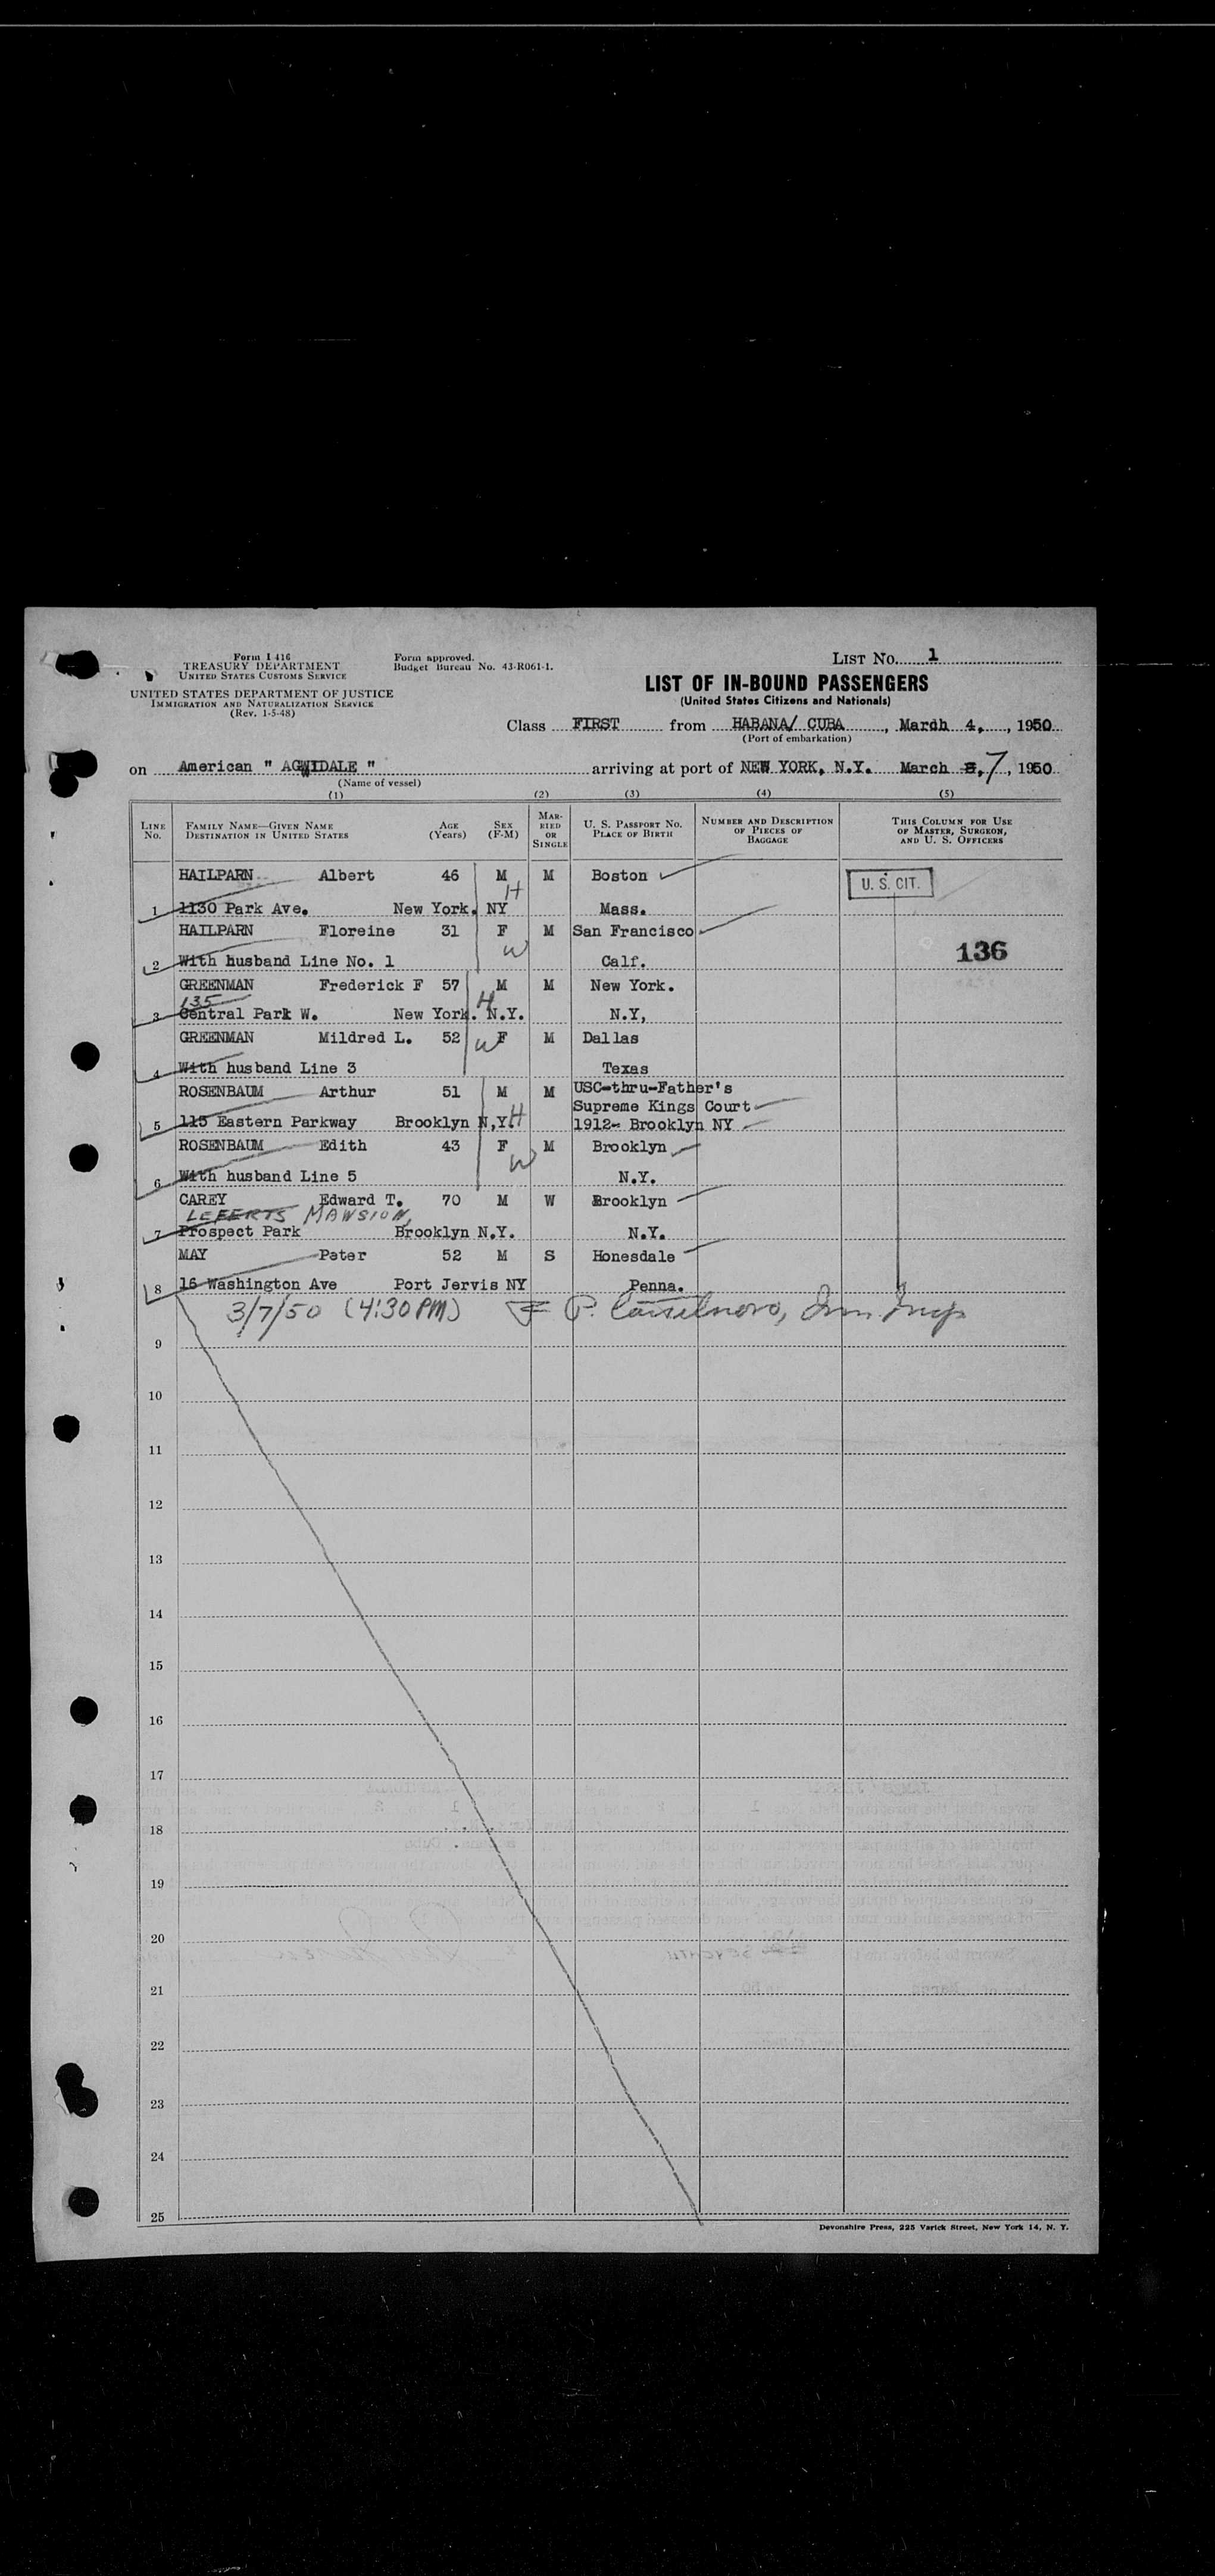 Form I 416
TREASURY DEPARTMENT
UNITED STATES CUSTOMS SERVICE
UNITED STATES DEPARTMENT OF JUSTICE
IMMIGRATION AND NATURALIZATION SERVICE
(Rev. 1-5-48)
Form approved.
Budget Bureau No. 43-R061-1.
LIST No. 1
LIST OF IN-BOUND PASSENGERS
(United States Citizens and Nationals)
Class FIRST from HABANA/ CUBA, March 4, 1950
(Port of embarkation)
on American " AGWIDALE " arriving at port of NEW YORK, N.Y. March 8, 7, 1950
(Name of vessel)
(1) (2) (3) (4) (5)
LINE No. FAMILY NAME—GIVEN NAME DESTINATION IN UNITED STATES AGE (Years) SEX (F-M) MARRIED OR SINGLE U. S. PASSPORT No. PLACE OF BIRTH NUMBER AND DESCRIPTION OF PIECES OF BAGGAGE THIS COLUMN FOR USE OF MASTER, SURGEON, AND U. S. OFFICERS
HAILPARN Albert 46 M M Boston U. S. CIT.
H
1 1130 Park Ave. New York. NY Mass.
HAILPARN Floreine 31 F M San Francisco
W 136
2 With husband Line No. 1 Calf.
GREENMAN Frederick F 57 M M New York.
135 H
3 Central Park W. New York. N.Y. N.Y,
GREENMAN Mildred L. 52 W F M Dallas
4 With husband Line 3 Texas
ROSENBAUM Arthur 51 M M USC-thru-Father's
Supreme Kings Court
5 115 Eastern Parkway Brooklyn N,Y. H 1912- Brooklyn NY
ROSENBAUM Edith 43 F M Brooklyn
W
6 With husband Line 5 N.Y.
CAREY Edward T. 70 M W Brooklyn
LEFERTS MANSION,
7 Prospect Park Brooklyn N.Y. N.Y.
MAY Peter 52 M S Honesdale
8 16 Washington Ave Port Jervis NY Penna.
3/7/50 (4:30 PM) P.
9
10
11
12
13
14
15
16
17
18
19
20
21
22
23
24
25
Devonshire Press, 225 Varick Street, New York 14, N. Y.